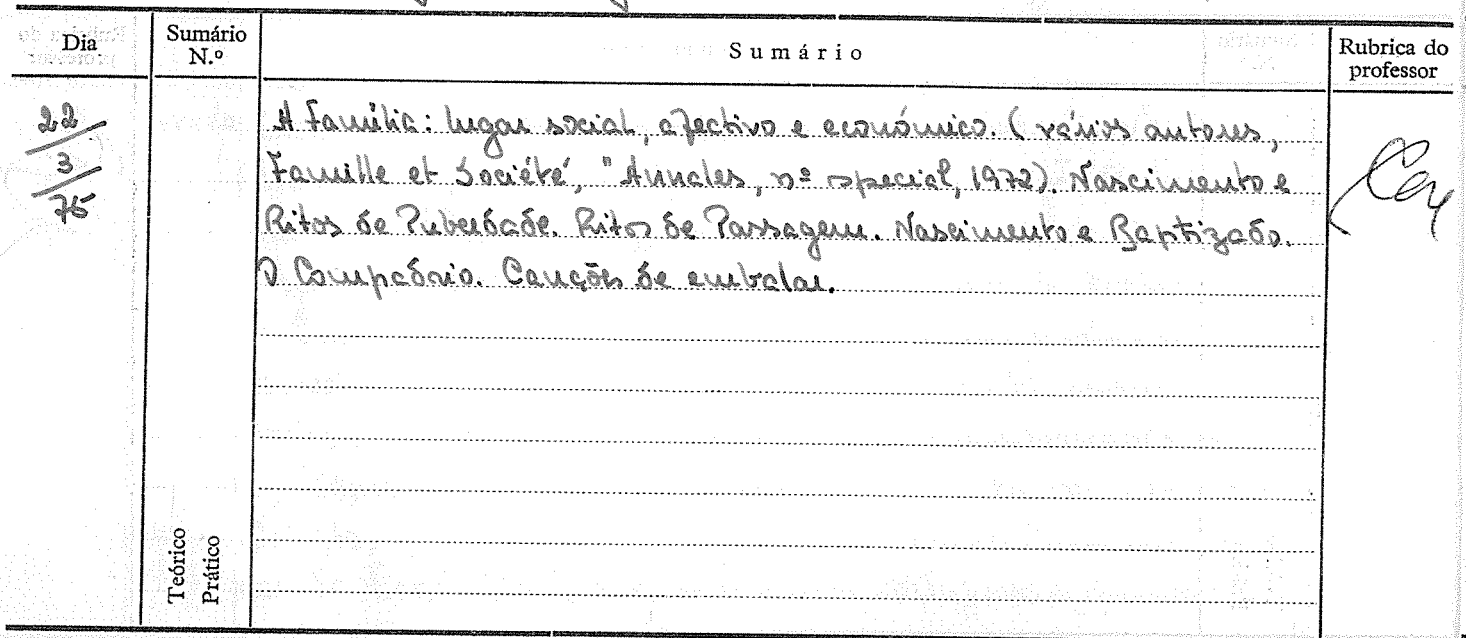 Dia
Sumário N.º
Sumário
Rubrica do professor
22/3/75
A Família: lugar social, afectivo e económico. (vários autores,
Famille et Société, "Annales, nº special, 1972). Nascimento e
Ritos de Puberdade. Ritos de Passagem. Nascimento e Baptizado.
O Compadrio. Canções de embalar.
Teórico
Prático